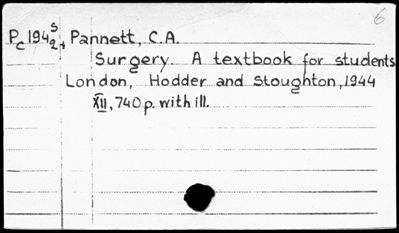 6
Pc194 S/24 Pannett, C.A.
Surgery. A textbook for students
London, Hodder and Stoughton, 1944
XII, 740 p. with ill.